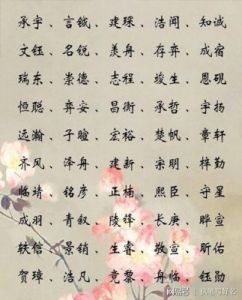 承宇、言钺、建琛、浩闻、知诚
文钰、名锐、美舟、存弈、成宿
瑞东、崇德、志程、竣生、恩砚
恒聪、弈安、昌衡、承哲、宇扬
远瀚、子瞳、宏裕、楚帆、章轩
齐风、泽舟、建新、宗明、梓勤
临靖、铭彦、正楠、熙臣、守星
成羽、青叙、陵锋、长庚、晔宣
轶信、景销、生睿、敬宣、昕佑
贺璋、浩凡、竞黎、舟临、钰勋